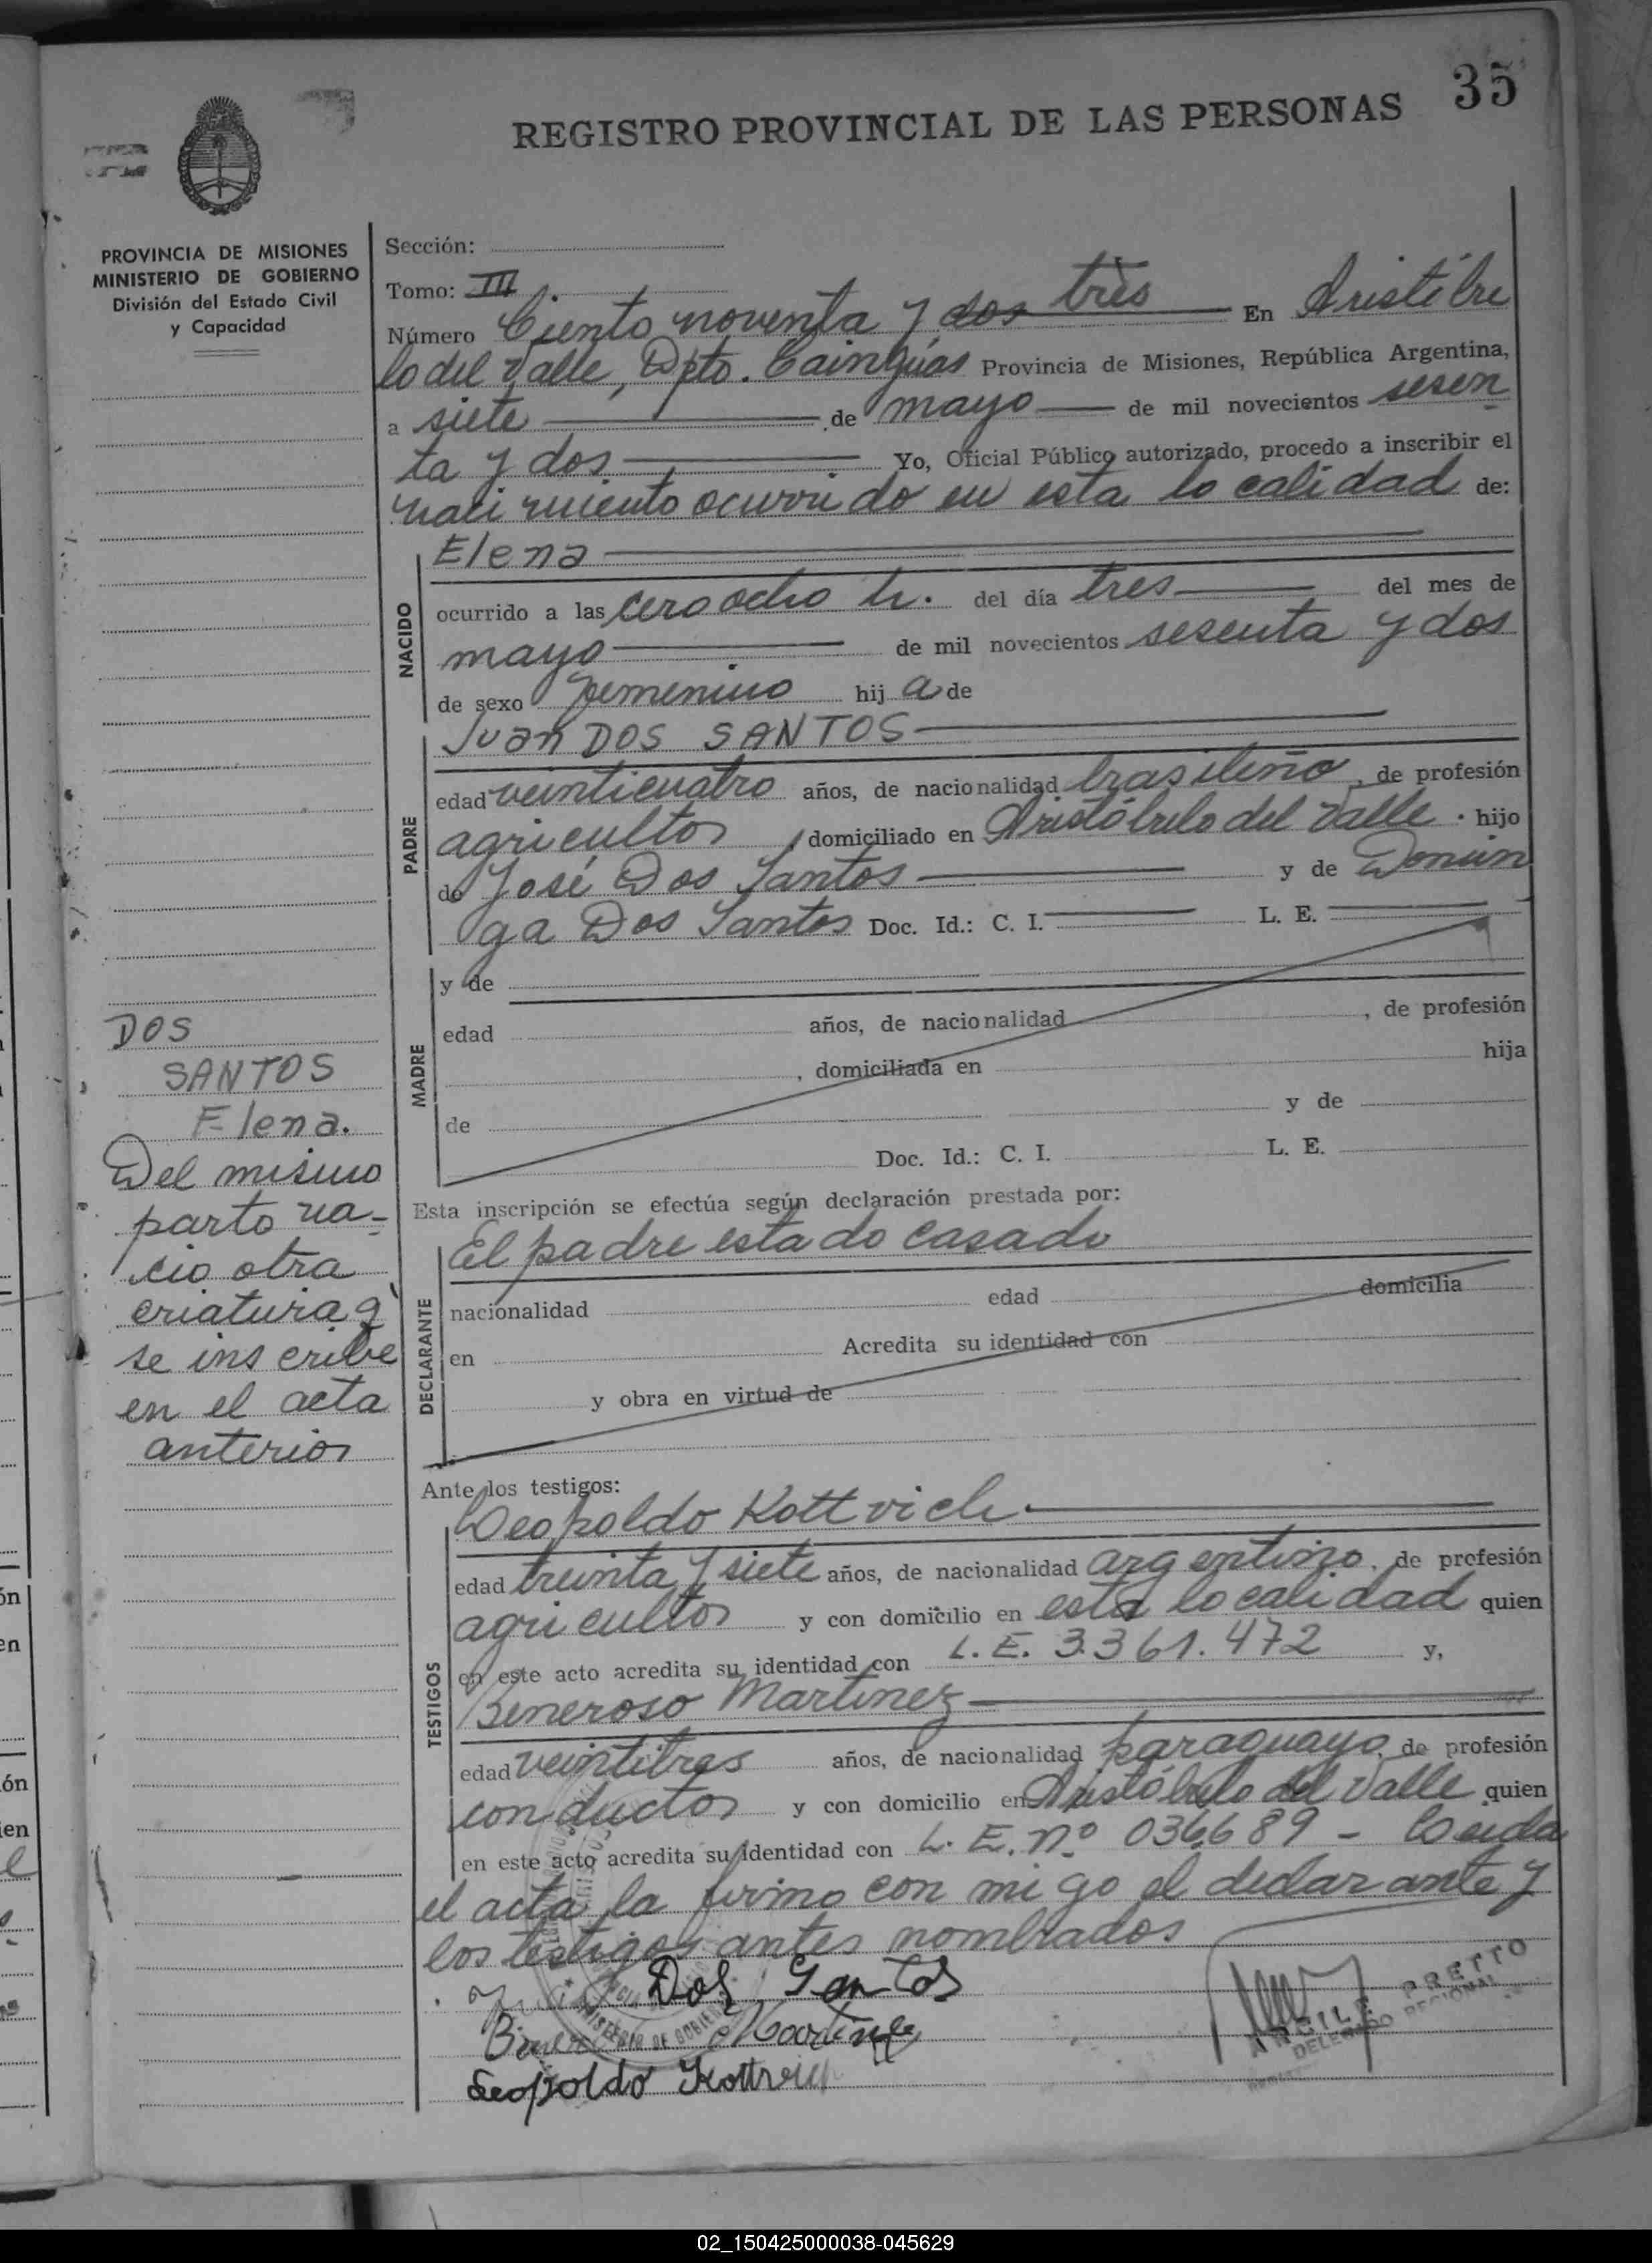 35
REGISTRO PROVINCIAL DE LAS PERSONAS
PROVINCIA DE MISIONES
MINISTERIO DE GOBIERNO
División del Estado Civil
y Capacidad
Sección:
Tomo: III.
Número Ciento noventa y dos tres En Aristóbu
lo del Valle, Dpto. Cainguás Provincia de Misiones, República Argentina,
a siete de mayo de mil novecientos sesen
ta y dos Yo, Oficial Público autorizado, procedo a inscribir el
nacimiento ocurrido en esta localidad de:
NACIDO
Elena
ocurrido a las cero ocho h. del día tres del mes de
mayo de mil novecientos sesenta y dos
de sexo femenino hij a de
PADRE
Juan DOS SANTOS
edad veinticuatro años, de nacionalidad brasileño, de profesión
agricultor, domiciliado en Aristóbulo del Valle. hijo
de José Dos Santos y de Domin
ga Dos Santos Doc. Id.: C. I. L. E.
MADRE
y de
edad años, de nacionalidad, de profesión
, domiciliada en hija
de y de
Doc. Id.: C. I. L. E.
DOS
SANTOS
Elena.
Del mismo
parto na-
cio otra
criatura q'
se inscribe
en el acta
anterior
Esta inscripción se efectúa según declaración prestada por:
DECLARANTE
El padre estado casado
nacionalidad edad domicilia
en Acredita su identidad con
y obra en virtud de
Ante los testigos:
TESTIGOS
Leopoldo Kottvich
edad treinta y siete años, de nacionalidad argentino, de profesión
agricultor y con domicilio en esta localidad quien
en este acto acredita su identidad con L. E. 3.361.472 y,
Beneroso Martinez
edad veintitres años, de nacionalidad paraguayo, de profesión
conductor y con domicilio en Aristóbulo del Valle quien
en este acto acredita su identidad con L. E. nº 036689 - Leida
el acta la firmo con migo el declarante y
los testigos antes nombrados
Dos Santos
Martinez
Leopoldo Kottvich
PRETTO
DELEGADO REGIONAL
02_150425000038-045629